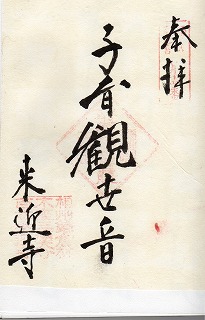 奉拝
子育観世音
来迎寺